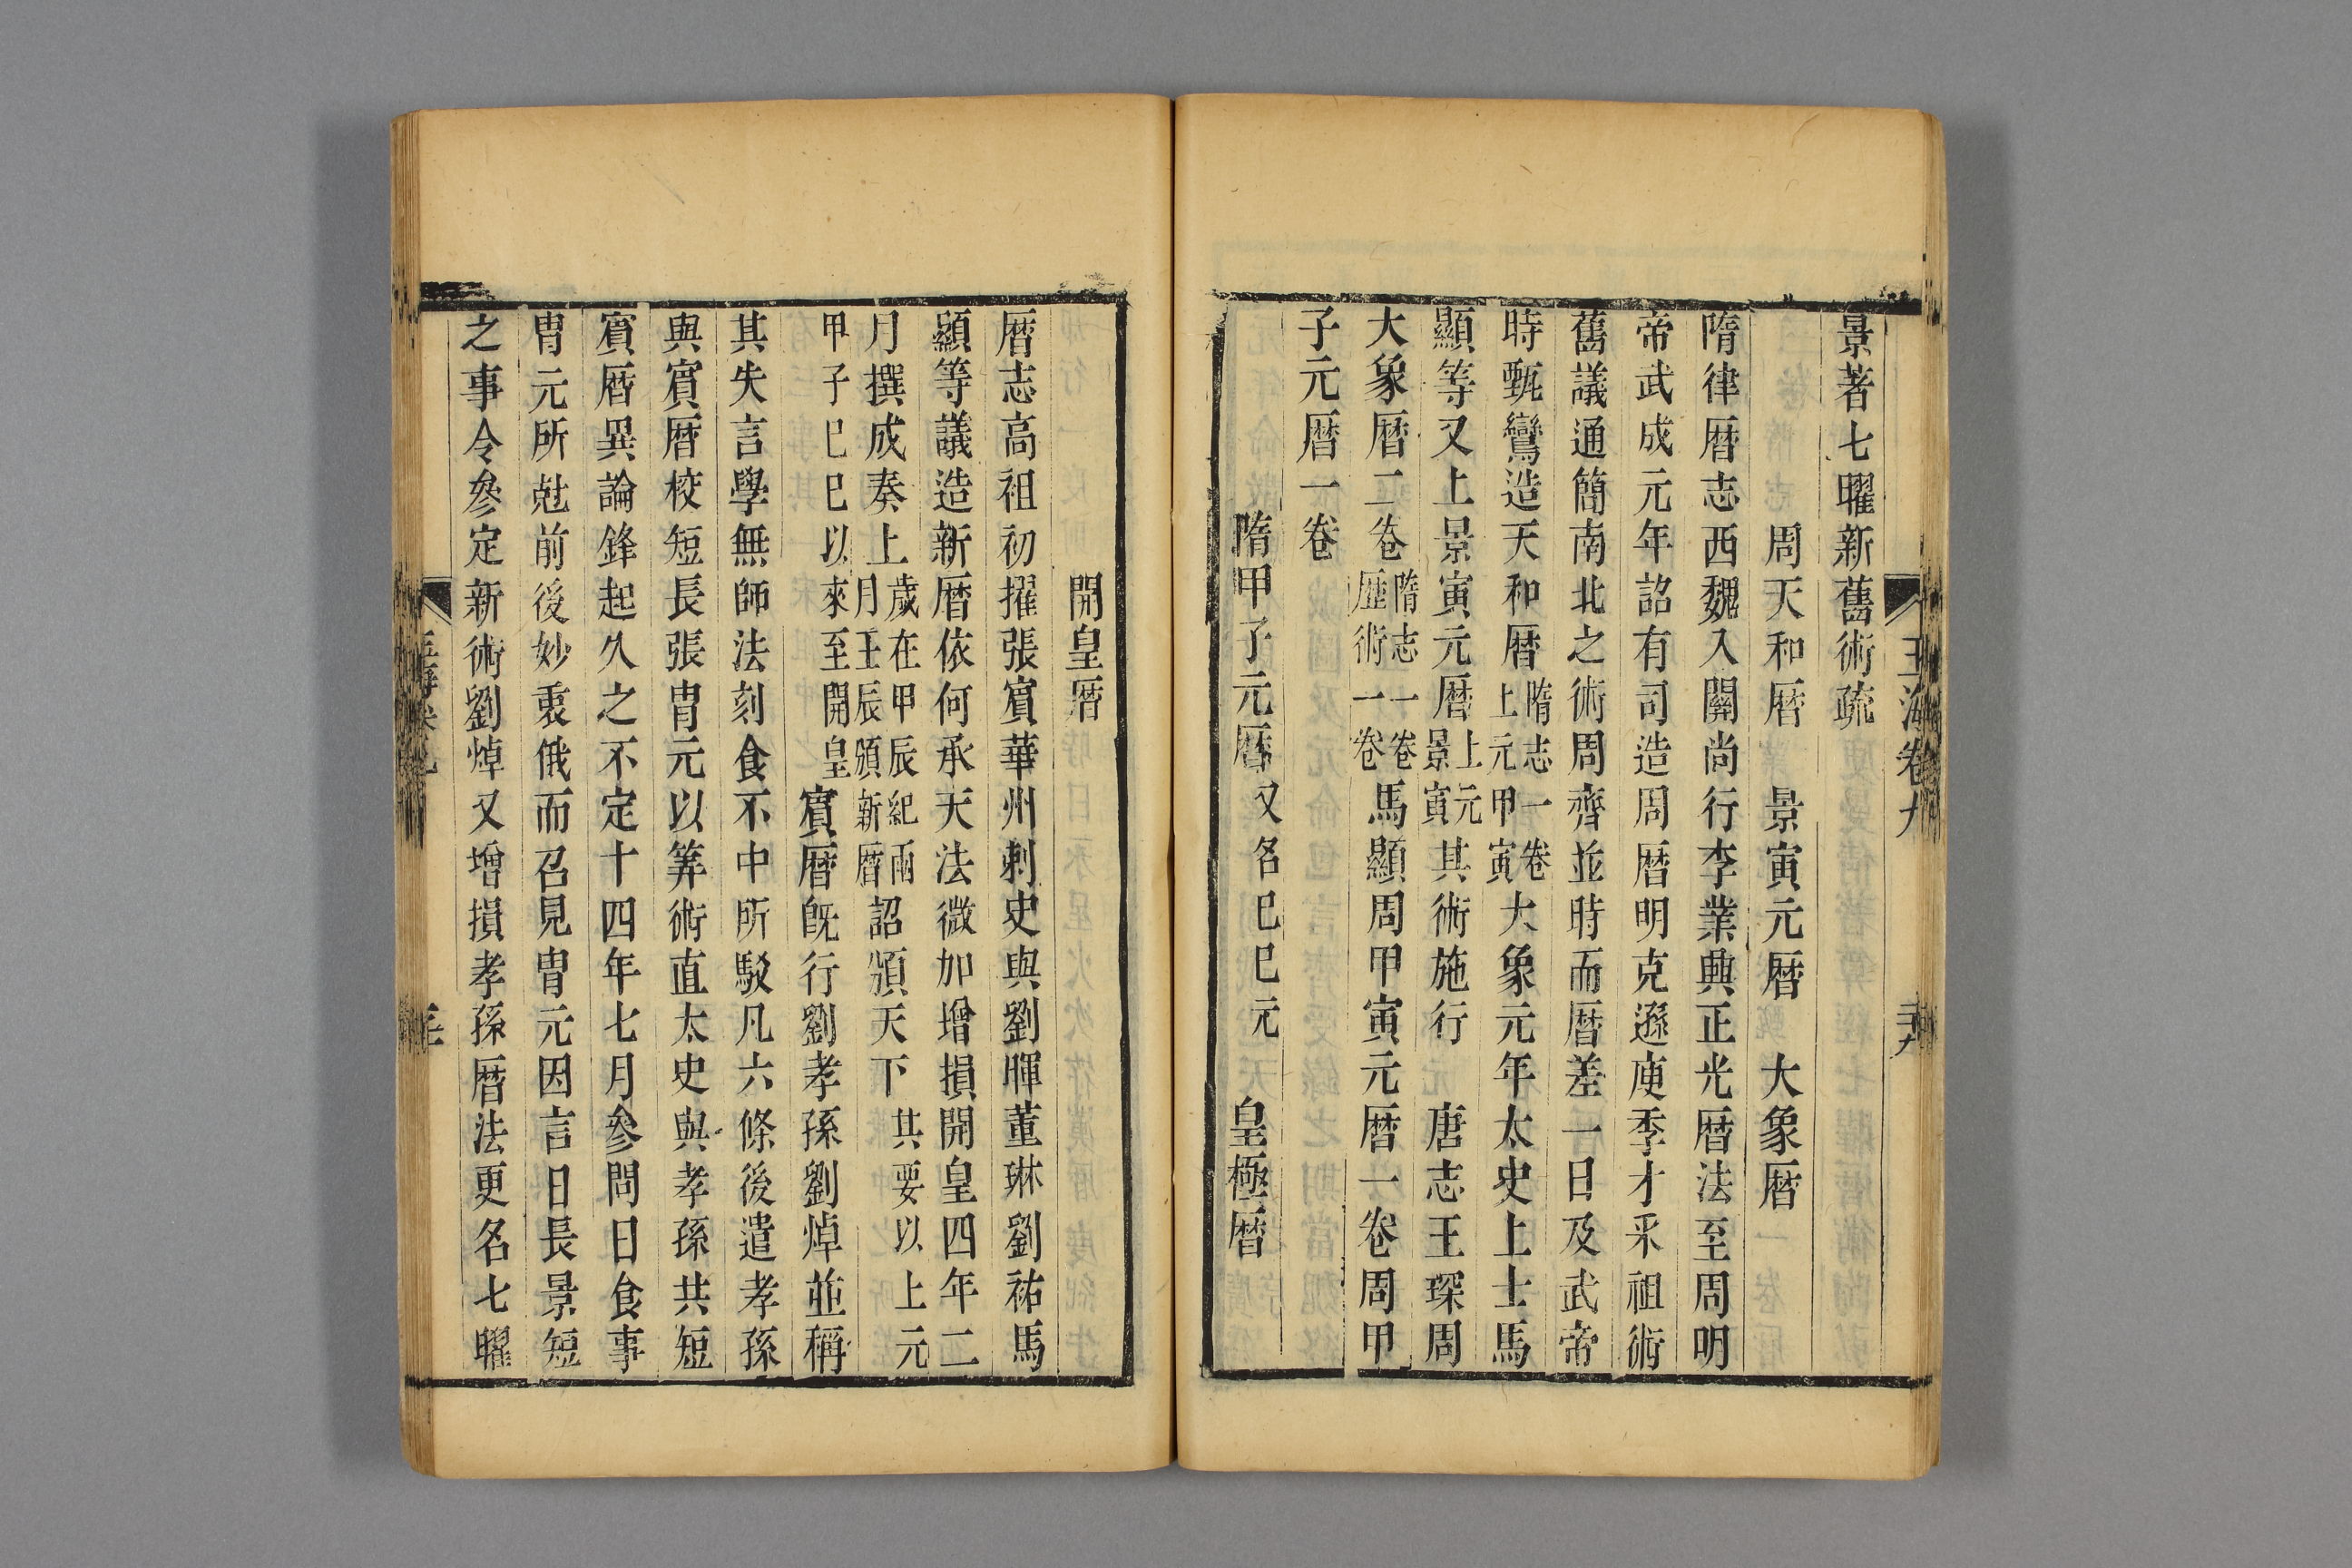 玉海卷九
景著七曜新舊術疏
周天和曆　景寅元曆　大象曆
隋律曆志西魏入關尚行李業興正光曆法至周明
帝武成元年詔有司造周曆明克遜庾季才采祖術
舊議通簡南北之術周齊並時而曆差一日及武帝
時甄鸞造天和曆隋志一卷上元甲寅大象元年太史上士馬
顯等又上景寅元曆上元景寅其術施行　唐志王琛周
大象曆二卷隋志一卷歴術一卷馬顯周甲寅元曆一卷周甲
子元曆一卷
隋甲子元曆又名巳巳元　皇極曆
開皇曆
曆志高祖初擢張賓華州刺史與劉暉董琳劉祐馬
顯等議造新曆依何承天法微加增損開皇四年二
月撰成奏上歲在甲辰紀兩月王辰頒新曆詔頒天下其要以上元
甲子巳巳以來至開皇賓曆旣行劉孝孫劉焯並稱
其失言學無師法刻食不中所駁凡六條後遣孝孫
與賓曆校短長張冑元以筭術直太史與孝孫共短
賓曆異論鋒起久之不定十四年七月參問日食事
冑元所尅前後妙衷俄而召見冑元因言日長景短
之事令參定新術劉焯又增損孝孫曆法更名七曜